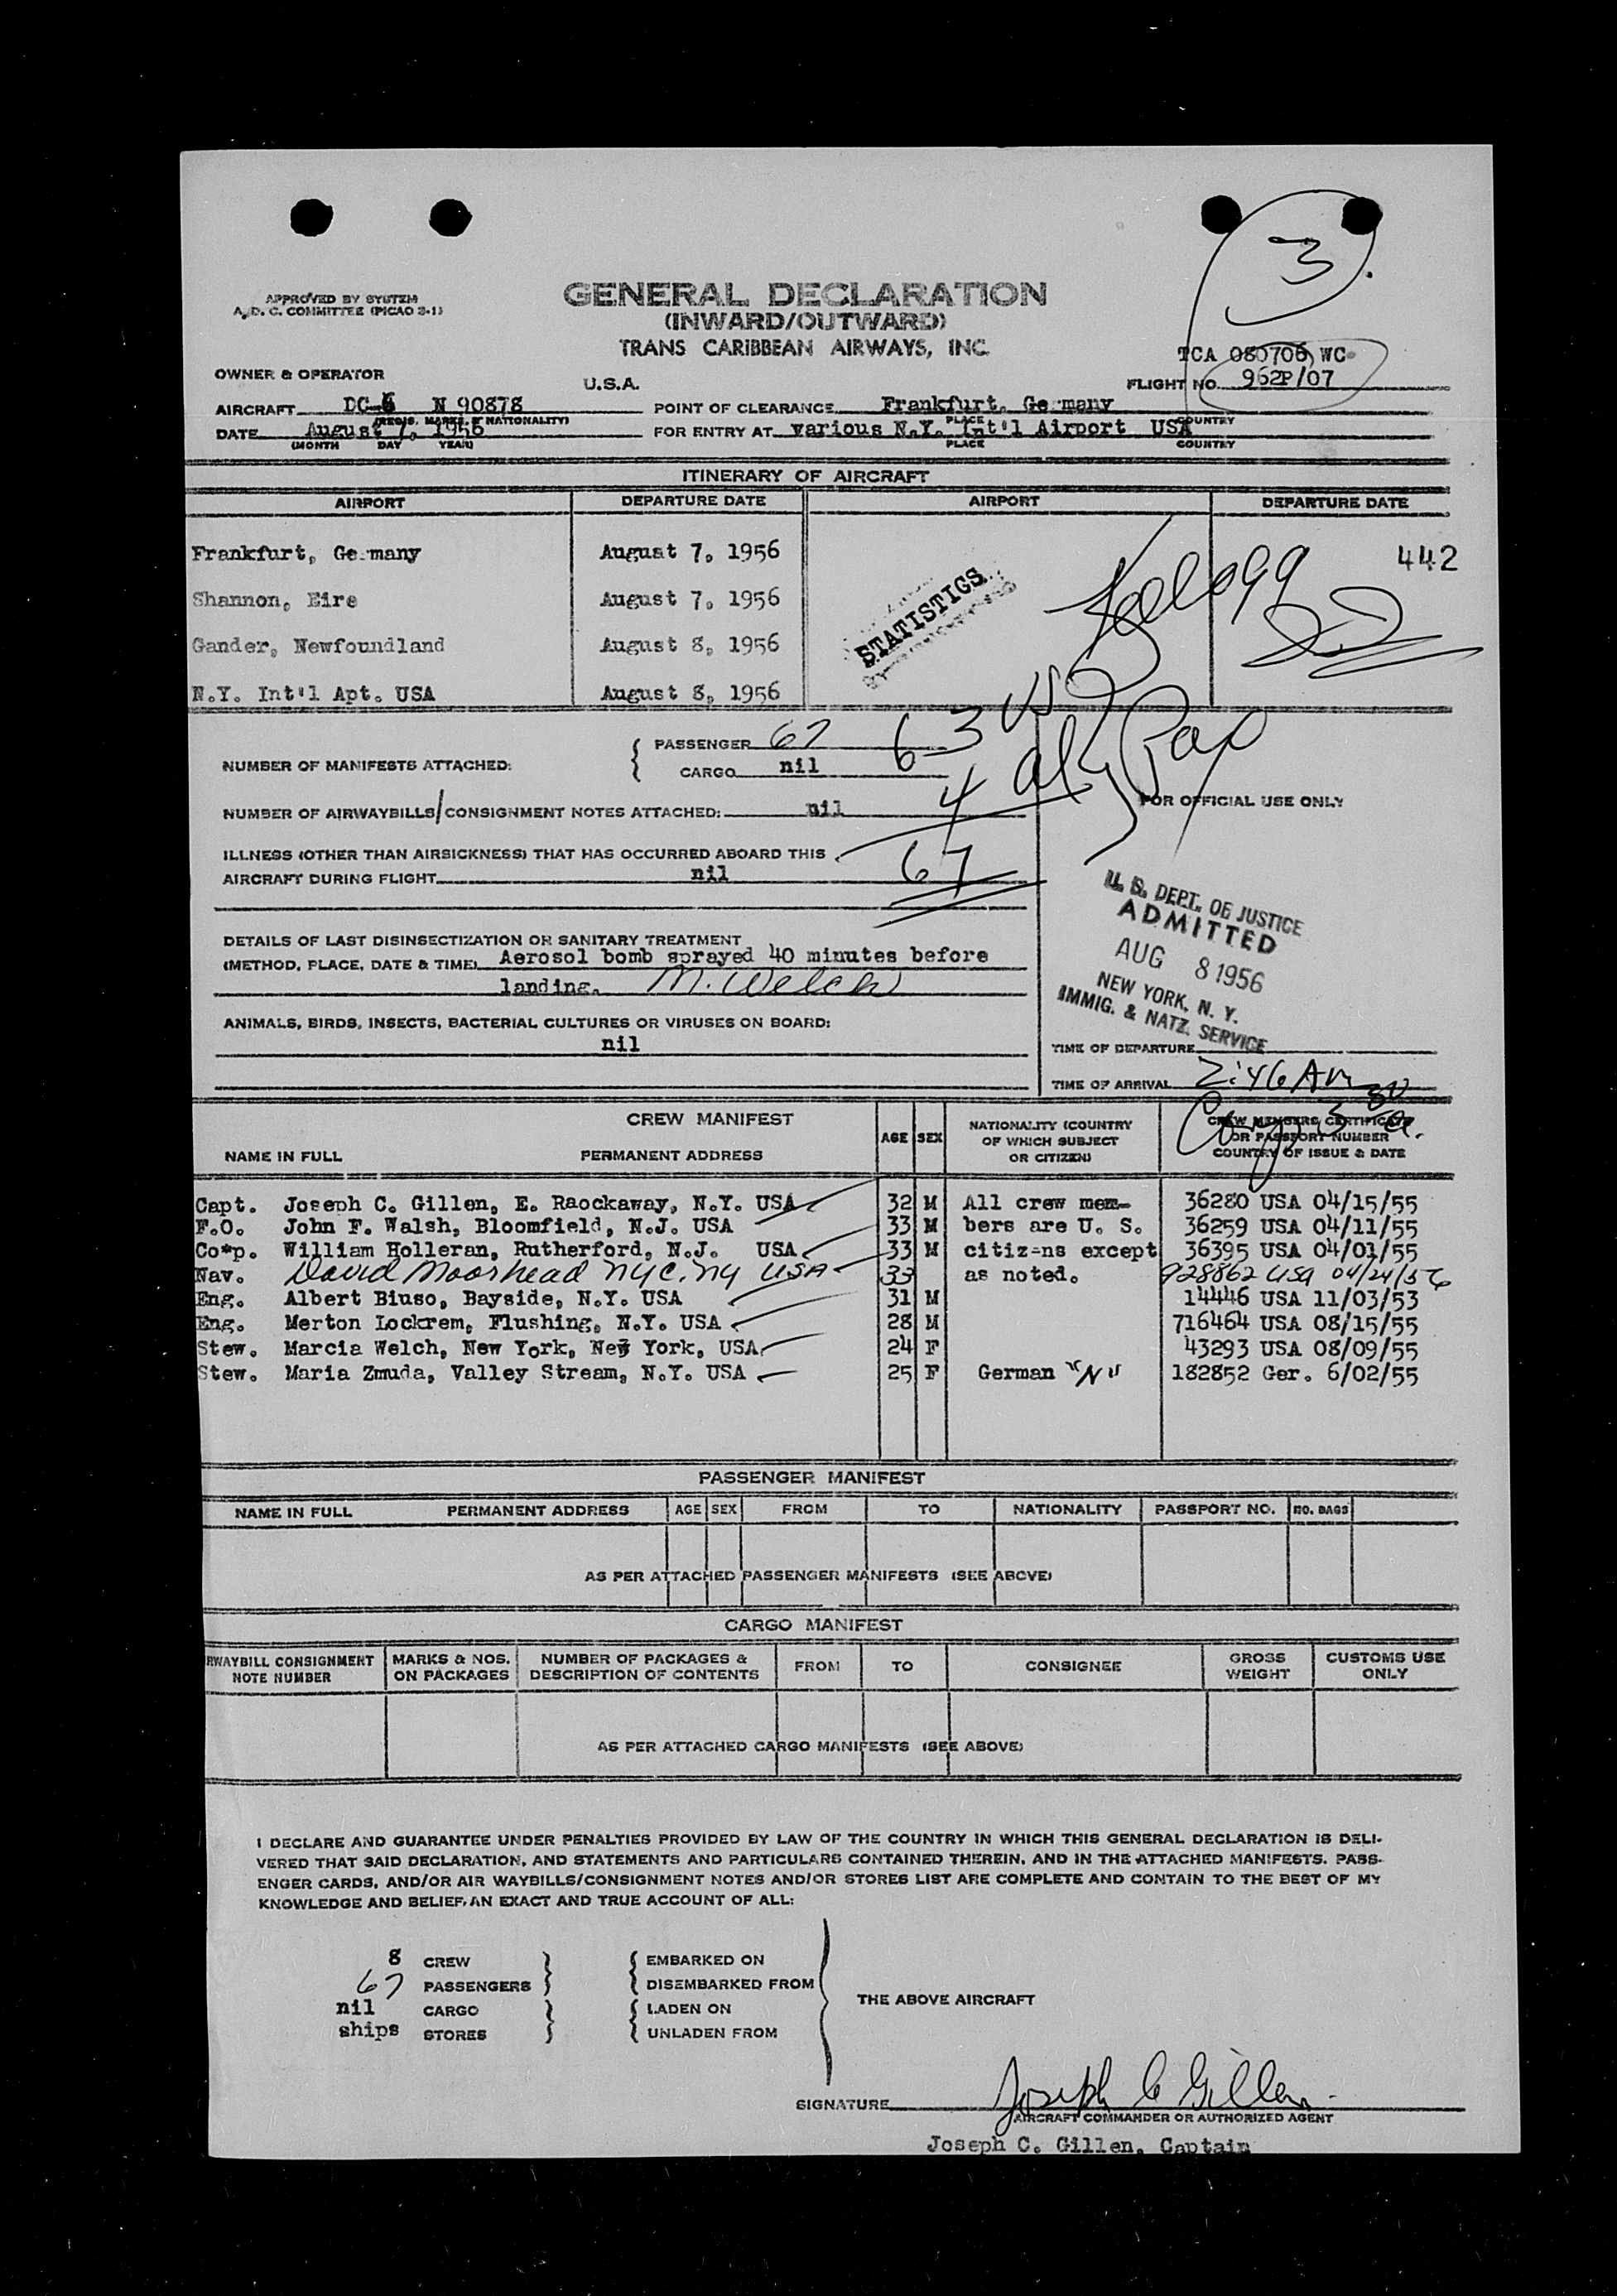 3
APPROVED BY SYSTEM
A. D. C. COMMITTEE (PICAO 3-1)
GENERAL DECLARATION
(INWARD/OUTWARD)
TRANS CARIBBEAN AIRWAYS, INC.
TCA 080706 WC
OWNER & OPERATOR
U.S.A.
FLIGHT NO. 962P/07
AIRCRAFT DC-6 N 90878
(REGIS. MARKS & NATIONALITY)
POINT OF CLEARANCE Frankfurt, Germany
PLACE COUNTRY
DATE August 7, 1956
(MONTH DAY YEAR)
FOR ENTRY AT various N.Y. Int'l Airport USA
PLACE COUNTRY
ITINERARY OF AIRCRAFT
AIRPORT DEPARTURE DATE AIRPORT DEPARTURE DATE
Frankfurt, Ge many August 7, 1956 442
Shannon, Eire August 7, 1956
Gander, Newfoundland August 8, 1956
N.Y. Int'l Apt. USA August 8, 1956
STATISTICS
Kellogg
63 US
4 al
67
NUMBER OF MANIFESTS ATTACHED:
PASSENGER 67
CARGO nil
NUMBER OF AIRWAYBILLS/CONSIGNMENT NOTES ATTACHED: nil
FOR OFFICIAL USE ONLY
ILLNESS (OTHER THAN AIRSICKNESS) THAT HAS OCCURRED ABOARD THIS
AIRCRAFT DURING FLIGHT nil
DETAILS OF LAST DISINSECTIZATION OR SANITARY TREATMENT
(METHOD, PLACE, DATE & TIME) Aerosol bomb sprayed 40 minutes before
landing. M. Welch
ANIMALS, BIRDS, INSECTS, BACTERIAL CULTURES OR VIRUSES ON BOARD:
nil
U. S. DEPT. OF JUSTICE
ADMITTED
AUG 8 1956
NEW YORK, N. Y.
IMMIG. & NATZ. SERVICE
TIME OF DEPARTURE
TIME OF ARRIVAL 2:46 AM
CREW MANIFEST
NAME IN FULL PERMANENT ADDRESS
AGE SEX
NATIONALITY (COUNTRY
OF WHICH SUBJECT
OR CITIZEN)
CREW MEMBERS CERTIFICATE
OR PASSPORT NUMBER
COUNTRY OF ISSUE & DATE
Capt. Joseph C. Gillen, E. Raockaway, N.Y. USA 32 M All crew mem- 36280 USA 04/15/55
F.O. John F. Walsh, Bloomfield, N.J. USA 33 M bers are U. S. 36259 USA 04/11/55
Co*p. William Holleran, Rutherford, N.J. USA 33 M citizens except 36395 USA 04/01/55
Nav. David Moorhead NYC. NY USA 33 as noted. 928862 USA 04/24/56
Eng. Albert Biuso, Bayside, N.Y. USA 31 M 14446 USA 11/03/53
Eng. Merton Lockrem, Flushing, N.Y. USA 28 M 716464 USA 08/15/55
Stew. Marcia Welch, New York, New York, USA 24 F 43293 USA 08/09/55
Stew. Maria Zmuda, Valley Stream, N.Y. USA 25 F German "N" 182852 Ger. 6/02/55
PASSENGER MANIFEST
NAME IN FULL PERMANENT ADDRESS AGE SEX FROM TO NATIONALITY PASSPORT NO. NO. BAGS
AS PER ATTACHED PASSENGER MANIFESTS (SEE ABOVE)
CARGO MANIFEST
RWAYBILL CONSIGNMENT
NOTE NUMBER
MARKS & NOS.
ON PACKAGES
NUMBER OF PACKAGES &
DESCRIPTION OF CONTENTS
FROM TO CONSIGNEE
GROSS
WEIGHT
CUSTOMS USE
ONLY
AS PER ATTACHED CARGO MANIFESTS (SEE ABOVE)
I DECLARE AND GUARANTEE UNDER PENALTIES PROVIDED BY LAW OF THE COUNTRY IN WHICH THIS GENERAL DECLARATION IS DELI-
VERED THAT SAID DECLARATION, AND STATEMENTS AND PARTICULARS CONTAINED THEREIN, AND IN THE ATTACHED MANIFESTS, PASS-
ENGER CARDS, AND/OR AIR WAYBILLS/CONSIGNMENT NOTES AND/OR STORES LIST ARE COMPLETE AND CONTAIN TO THE BEST OF MY
KNOWLEDGE AND BELIEF, AN EXACT AND TRUE ACCOUNT OF ALL:
8 CREW EMBARKED ON
67 PASSENGERS DISEMBARKED FROM
nil CARGO LADEN ON
ships STORES UNLADEN FROM
THE ABOVE AIRCRAFT
SIGNATURE Joseph C Gillen
AIRCRAFT COMMANDER OR AUTHORIZED AGENT
Joseph C. Gillen, Captain